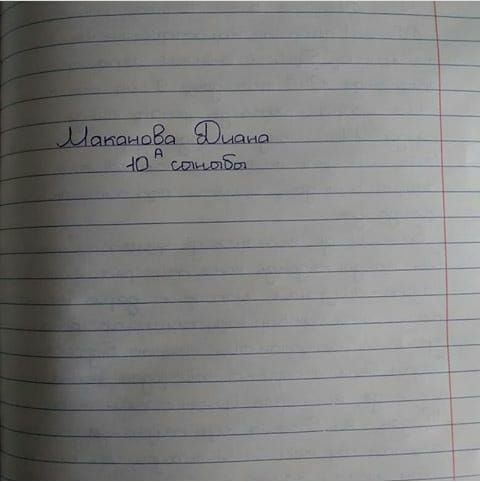 Маканова Диана
10 А сыныбы